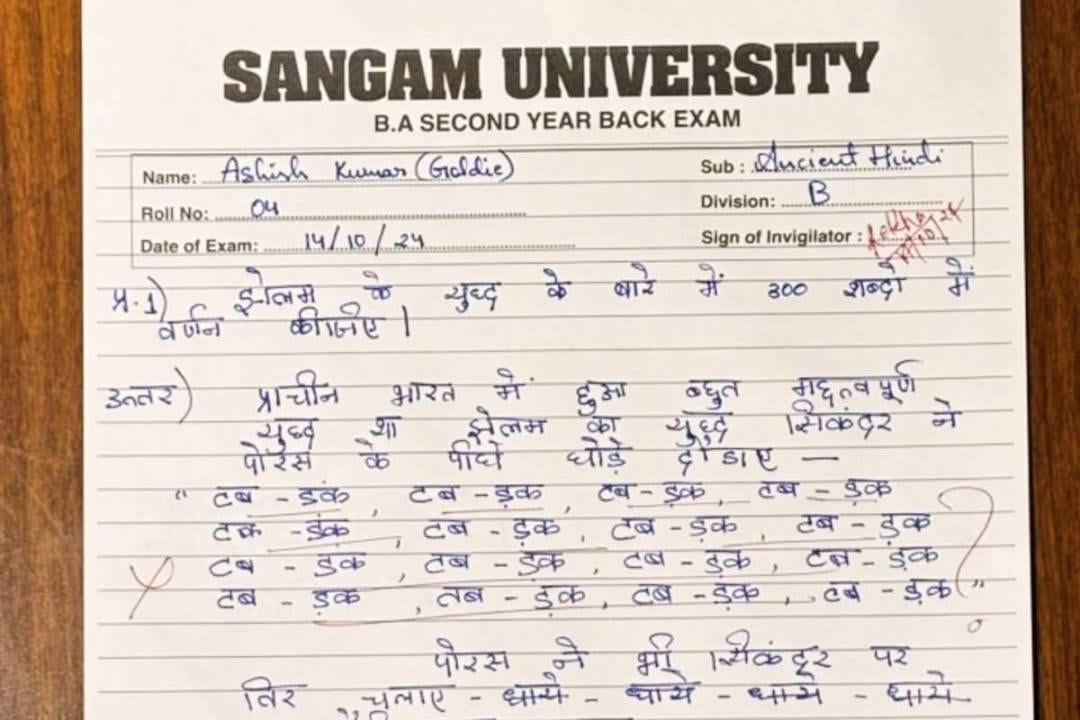 SANGAM UNIVERSITY
B.A SECOND YEAR BACK EXAM
Name: Ashish Kumar (Goldie) Sub : Ancient Hindi
Roll No: 04 Division: B
Date of Exam: 14/10/24 Sign of Invigilator :
प्र.1) झेलम के युध्द के बारे में 300 शब्दो में
वर्णन कीजिए |
उत्तर) प्राचीन भारत में हुआ बहुत महत्वपूर्ण
युध्द था झेलम का युध्द सिकंदर ने
पोरस के पीछे घोड़े दौडाए —
" टब - डंक , टब - ड़क , टब - ड़क , टब - ड़क
टक - डंक , टब - ड़क , टब - ड़क , टब - ड़क
टब - डक , टब - डक , टब - ड़क , टब - ड़क
टब - ड़क , तब - ड़क , टब - ड़क , टब - ड़क "
पोरस ने भी सिकंदर पर
तिर चलाए - धाये - धाये - धाये - धाये